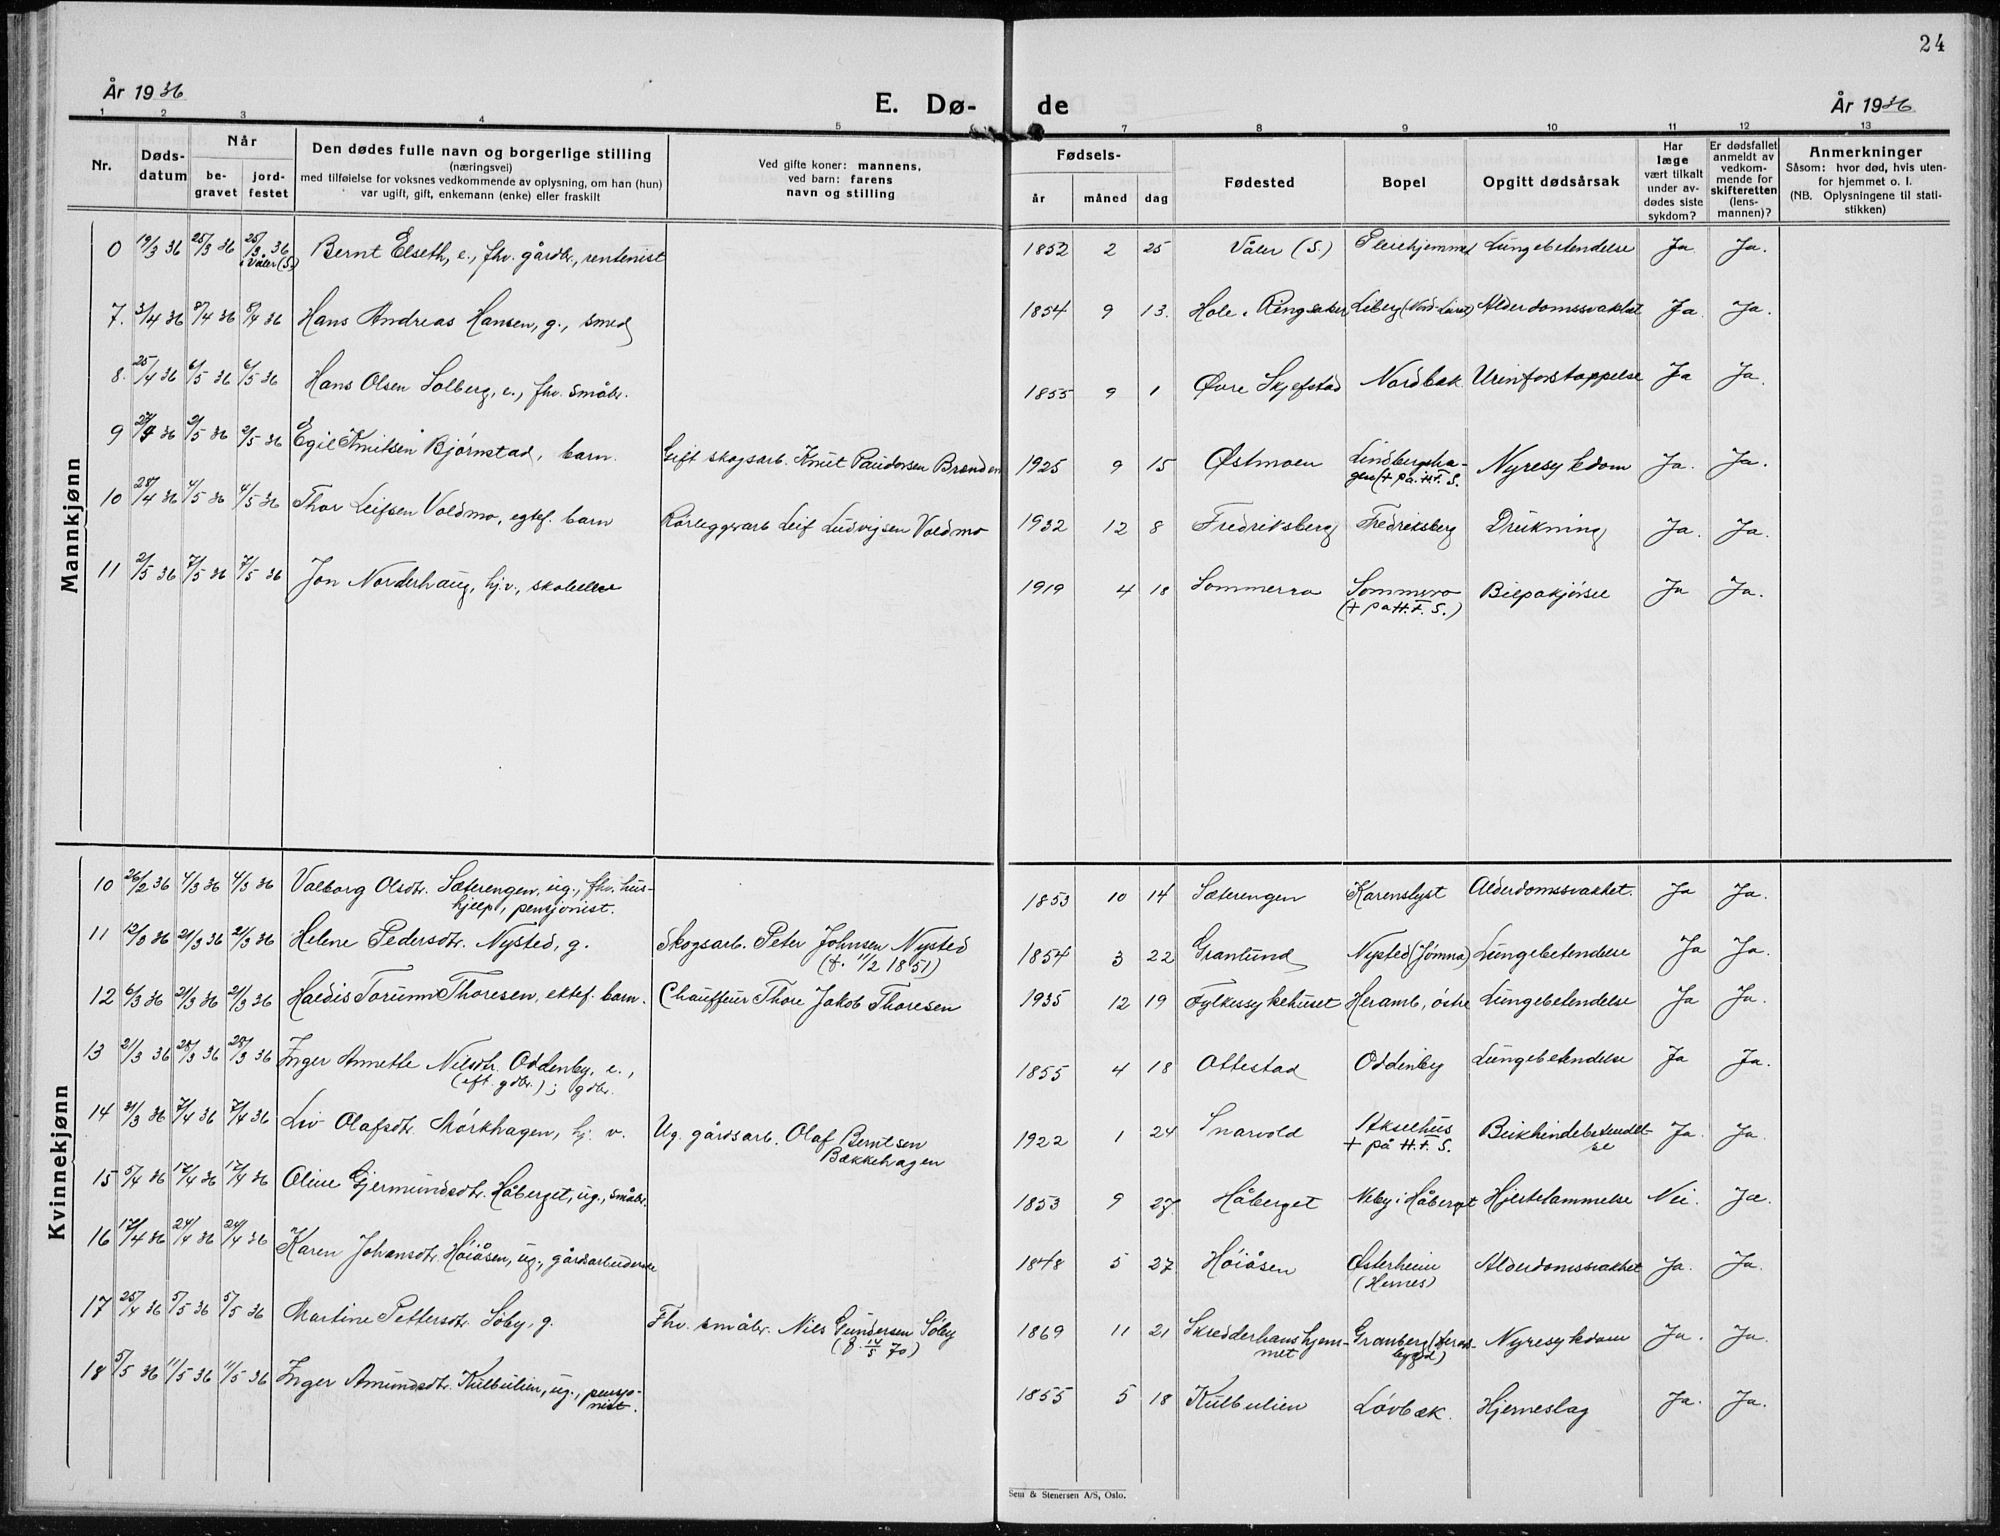 24
År 1936
E. Dø- de
År 1936
1 2 3 4 5 7 8 9 10 11 12 13
Nr.
Døds-datum
Når
be-gravet
jord-festet
Den dødes fulle navn og borgerlige stilling
(næringsvei)
med tilføielse for voksnes vedkommende av oplysning, om han (hun)
var ugift, gift, enkemann (enke) eller fraskilt
Ved gifte koner: mannens,
ved barn: farens
navn og stilling
Fødsels-
år måned dag
Fødested
Bopel
Opgitt dødsårsak
Har læge vært tilkalt under av-dødes siste sykdom?
Er dødsfallet anmeldt av vedkom-mende for skifteretten (lens-mannen)?
Anmerkninger
Såsom: hvor død, hvis uten-
for hjemmet o. l.
(NB. Oplysningene til stati-
stikken)
Mannkjønn
19/3 36 25/3 36 25/3 36 i Våler (S) Bernt Elseth, e., fhv. gårdbr., rentenist 1852 2 25 Våler (S) Pleiehjemmet Lungebetendelse Ja Ja.
7. 3/4 36 8/4 36 8/4 36 Hans Andreas Hansen, g., smed 1854 9 13. Hole i Ringsaker Liberg Alderdomssvakhet Ja Ja.
8. 25/4 36 6/5 36 6/5 36 Hans Olsen Solberg, e., fhv. småbr. 1855 9 1 Øvre Skjefstad Nordbak Urinforstoppelse Ja Ja.
9 27/4 36 2/5 36 2/5 36 Egil Knutsen Bjørnstad, barn. Gift skogsarb. Knut Paudorsen Brænden 1925 9 15 Østmoen Lindbergsha-
gen († på H.F.S. Nyresykdom Ja. Ja.
10 28/4 36 4/5 36 4/5 36 Thor Leifsen Voldmo, egtef. barn Rørleggerarb Leif Ludvigsen Voldmo 1932 12 8 Fredriksberg Fredriksberg Drukning Ja. Ja.
11 2/5 36 7/5 36 7/5 36 Jon Norderhaug, hj.v., skoleelev 1919 4 18 Sommerro Sommerro
(† på H.F.S.) Bilpakjørsel Ja Ja.
Kvinnekjønn
10 26/2 36 4/3 36 4/3 36 Valborg Olsdtr. Sæterengen, ug., fhv. hus-
hjelp, pensjonist. 1853 10 14 Sæterengen Karenslyst Alderdomssvakhet. Ja Ja.
11 12/3 36 21/3 36 21/3 36 Helene Pedersdtr. Nysted, g. Skogsarb. Peter Johnsen Nysted
(f. 11/2 1851) 1854 3 22 Granlund Nysted (Jømna) Lungebetendelse Ja Ja.
12 6/3 36 21/3 36 21/3 36 Haldis Torunn Thoresen, ektef. barn. Chauffeur Thore Jakob Thoresen 1935 12 19 Fylkessykehuset Heramb, østre Lungebetendelse Ja Ja.
13 21/3 36 28/3 36 28/3 36 Inger Annette Nilsdtr. Oddenby, e.,
(eft. gdbr.); gdbr. 1855 4 18 Ottestad Oddenby Lungebetendelse Ja Ja.
14 31/3 36 7/4 36 7/4 36 Liv Olafsdtr. Mørkhagen, hj. v. Ug. gårdsarb. Olaf Berntsen
Bækkehagen 1922 1 24 Snarvold Akselhus
† på H.F.S. Bukhindebetendel-
se Ja. Ja.
15 5/4 36 17/4 36 17/4 36 Oline Gjermundsdtr. Håberget, ug., småbr. 1853 9 27. Håberget Neby i Håberget Hjertelammelse Nei. Ja.
16 17/4 36 24/4 36 24/4 36 Karen Johansdtr. Høiåsen, ug., gårdsarbeiderske 1848 5 27 Høiåsen Østerheim
(Hernes) Alderdomssvakhet Ja. Ja.
17 25/4 36 5/5 36 5/5 36 Martine Pettersdtr. Søby, g. Fhv. småbr. Nils Gundersen Søby
(f. 14/5 70) 1869 11 21 Skredderhanshjem-
met Granberg (Heras-
bygd) Nyresykdom Ja. Ja.
18 5/5 36 11/5 36 11/5 36 Inger Amundsdtr. Kulbulien, ug., pensjo-
nist. 1855 5 18 Kulbulien Løvbæk. Hjerneslag Ja. Ja.
Sem & Stenersen A/S, Oslo.